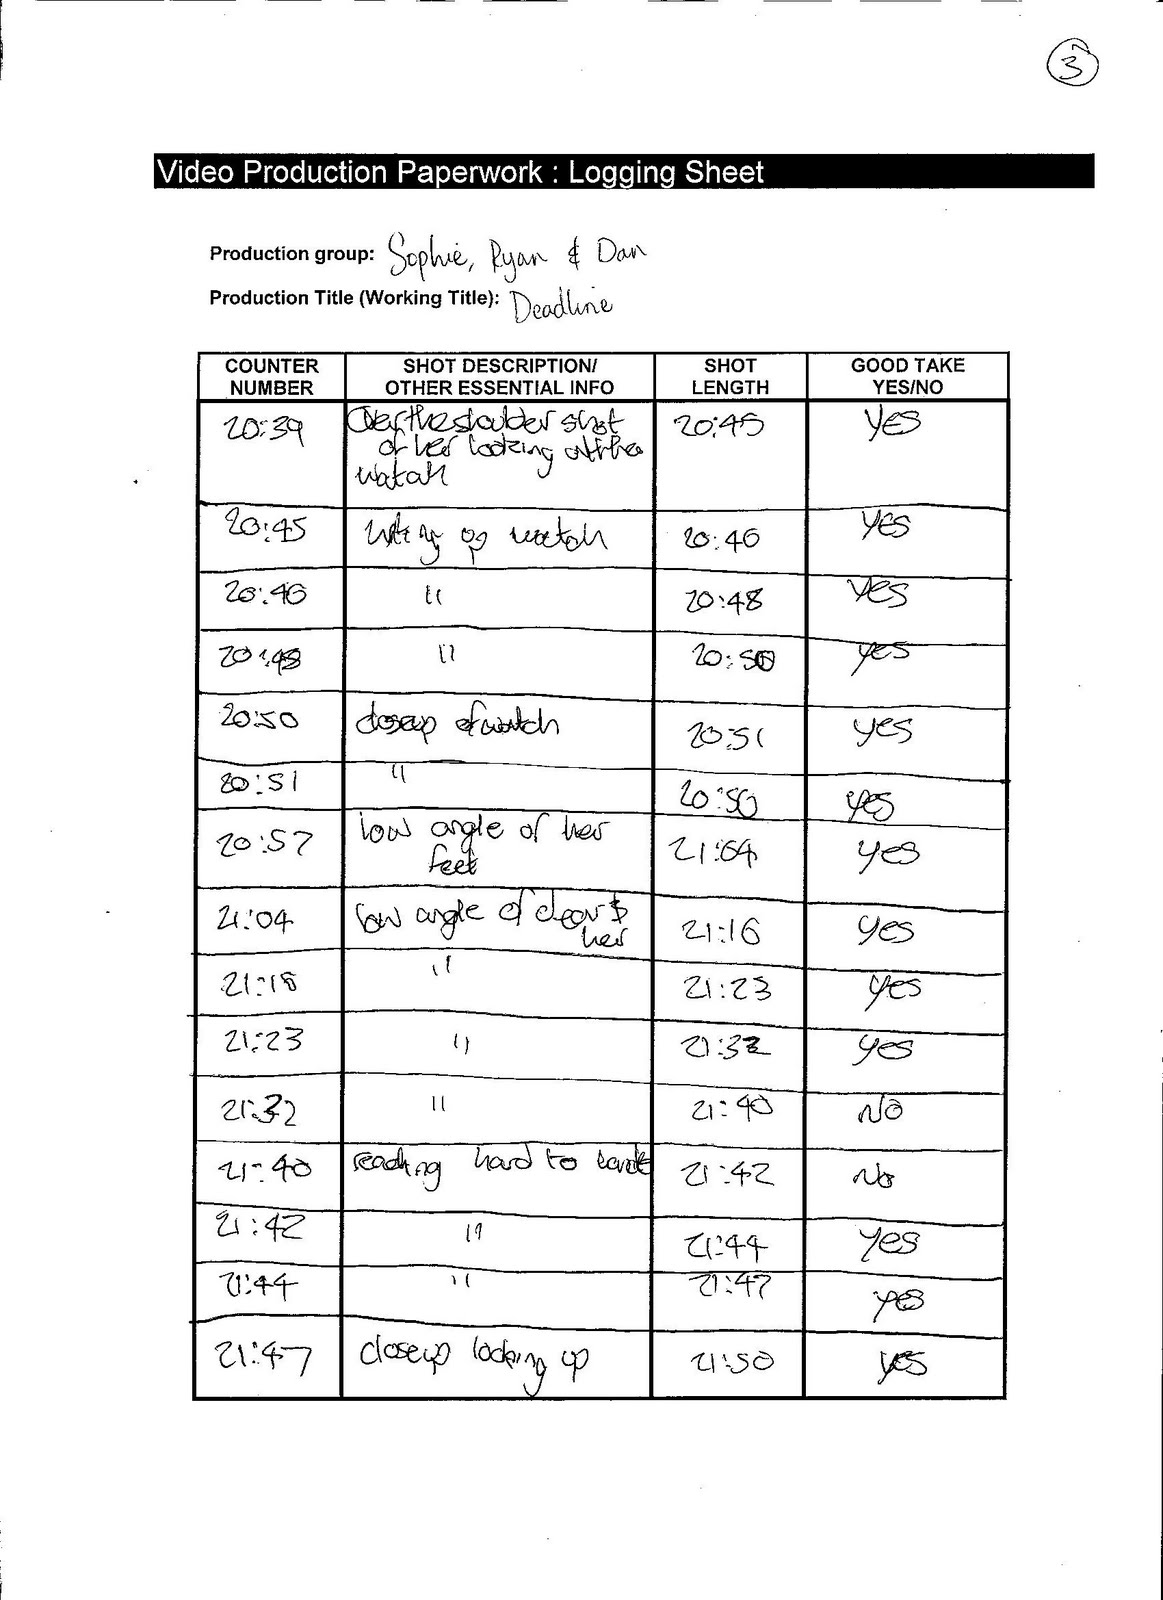 3
Video Production Paperwork : Logging Sheet
Production group: Sophie, Ryan & Dan
Production Title (Working Title): Deadline
COUNTER NUMBER SHOT DESCRIPTION/ OTHER ESSENTIAL INFO SHOT LENGTH GOOD TAKE YES/NO
20:39 Over the shoulder shot 20:45 yes
of her looking at the
watch
20:45 up watch 20:46 yes
20:46 " 20:48 yes
20:48 " 20:50 yes
20:50 closeup of watch 20:51 yes
20:51 " yes
20:57 low angle of her 21:04 yes
feet
21:04 low angle of door & 21:16 yes
her
" 21:23 yes
21:23 " 21:32 yes
21:32 " 21:40 No
21:40 reaching hand to 21:42 No
21:42 " 21:44 yes
21:44 " 21:47 yes
21:47 closeup looking up 21:50 yes